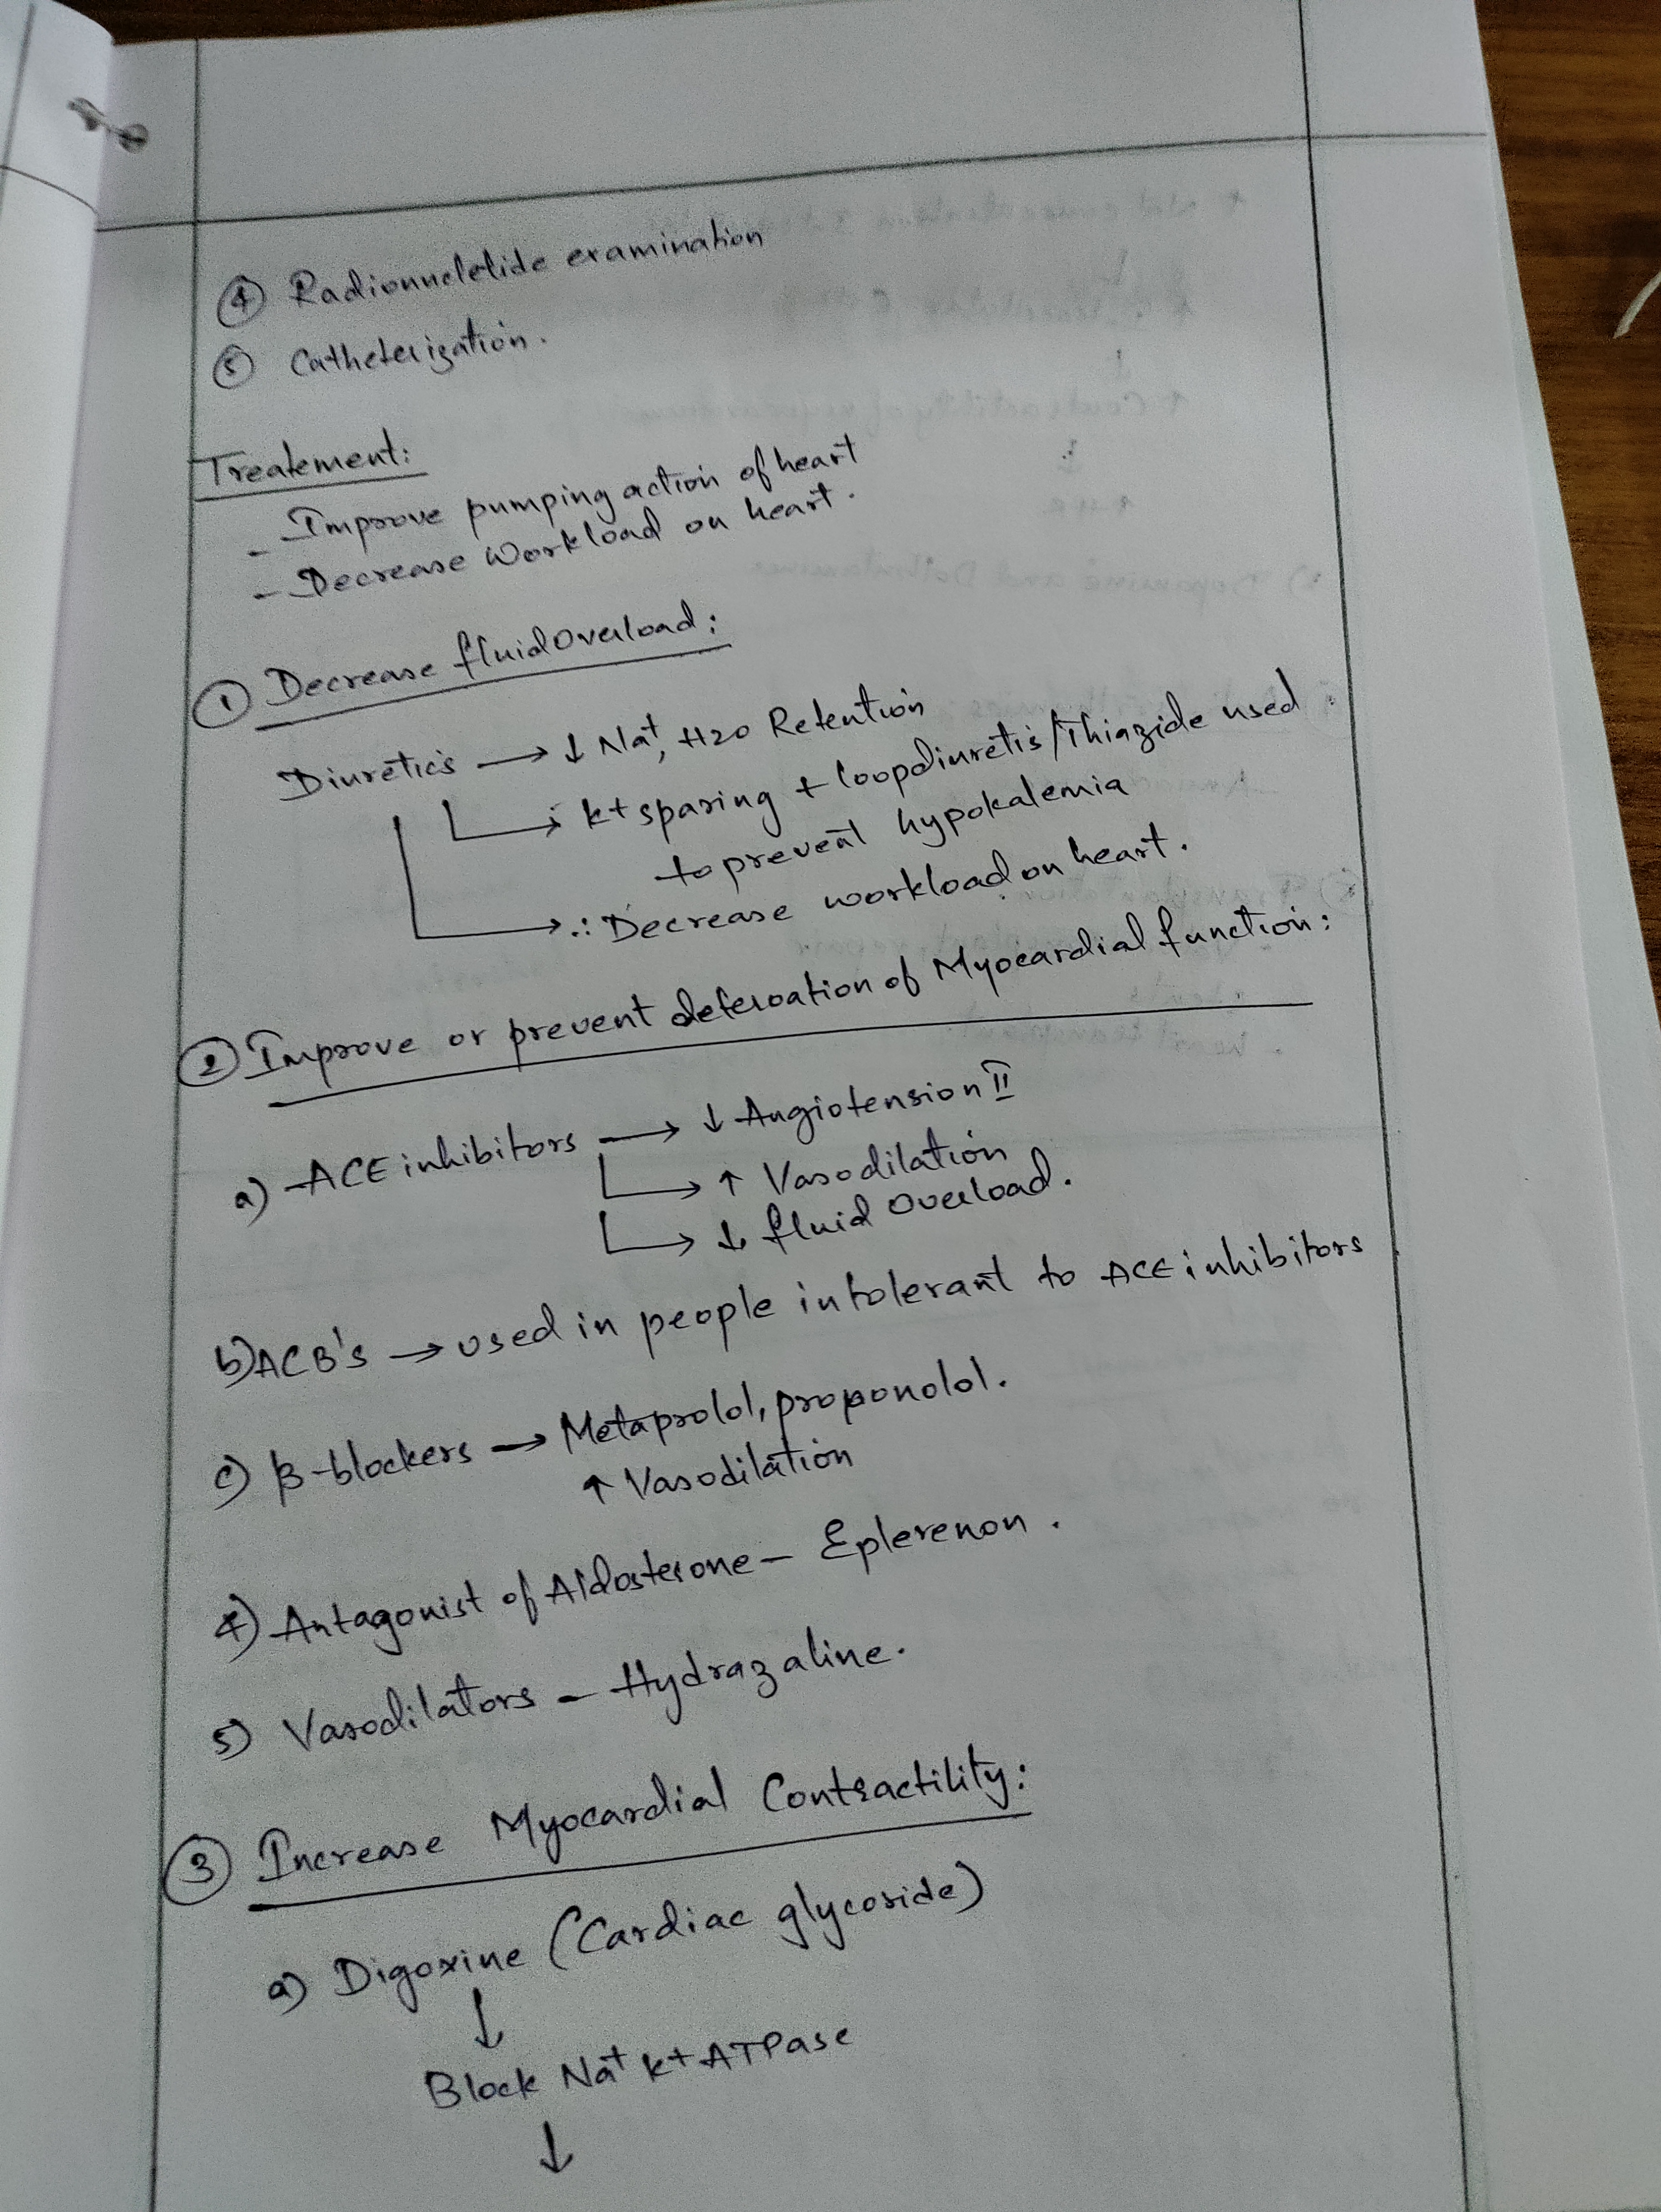 ④ Radionucletide examination
⑤ Catheterization.
Treatement:
- Improve pumping action of heart
- Decrease Workload on heart.
① Decrease fluid Overload:
Diuretics → ↓ Na+, H2O Retention
k+ sparing + loopdiuretis/Thiazide used
to prevent hypokalemia
∴ Decrease workload on heart.
② Improve or prevent deferoation of Myocardial function:
a) ACE inhibitors → ↓ Angiotension II
→ ↑ Vasodilation
→ ↓ fluid overload.
b) ACB's → used in people intolerant to ACE inhibitors
c) β-blockers → Metaprolol, proponolol.
↑ Vasodilation
4) Antagonist of Aldosterone - Eplerenon.
5) Vasodilators - Hydrazaline.
③ Increase Myocardial Contractility:
a) Digoxine (Cardiac glycoside)
↓
Block Na+ k+ ATPase
↓